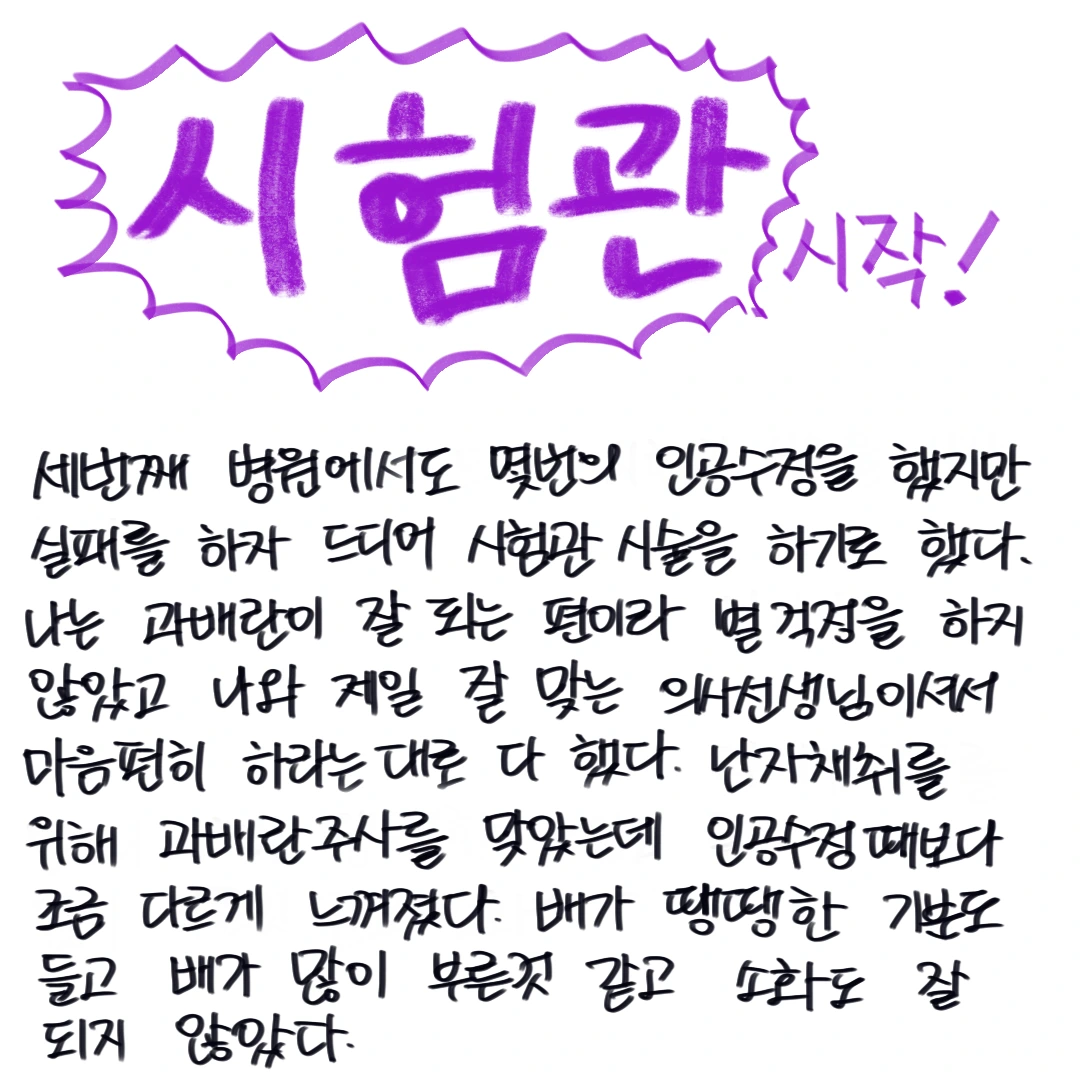 시험관
시작!
세번째 병원에서도 몇번의 인공수정을 했지만
실패를 하자 드디어 시험관 시술을 하기로 했다.
나는 과배란이 잘 되는 편이라 별 걱정을 하지
않았고 나와 제일 잘 맞는 의사선생님이셔서
마음편히 하라는대로 다 했다. 난자채취를
위해 과배란주사를 맞았는데 인공수정때보다
조금 다르게 느껴졌다. 배가 땡땡한 기분도
들고 배가 많이 부른것 같고 소화도 잘
되지 않았다.